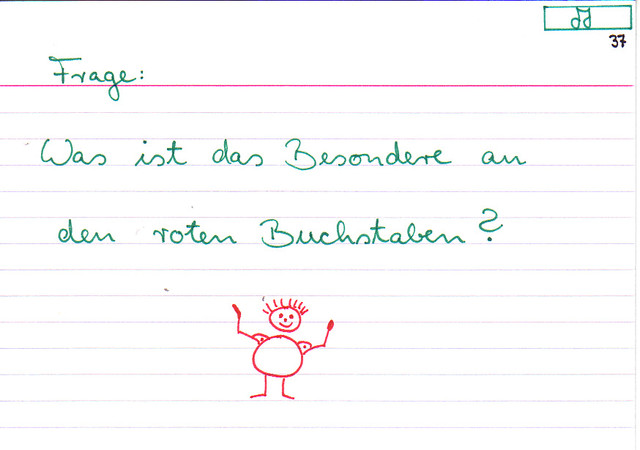 37
Frage:
Was ist das Besondere an
den roten Buchstaben?